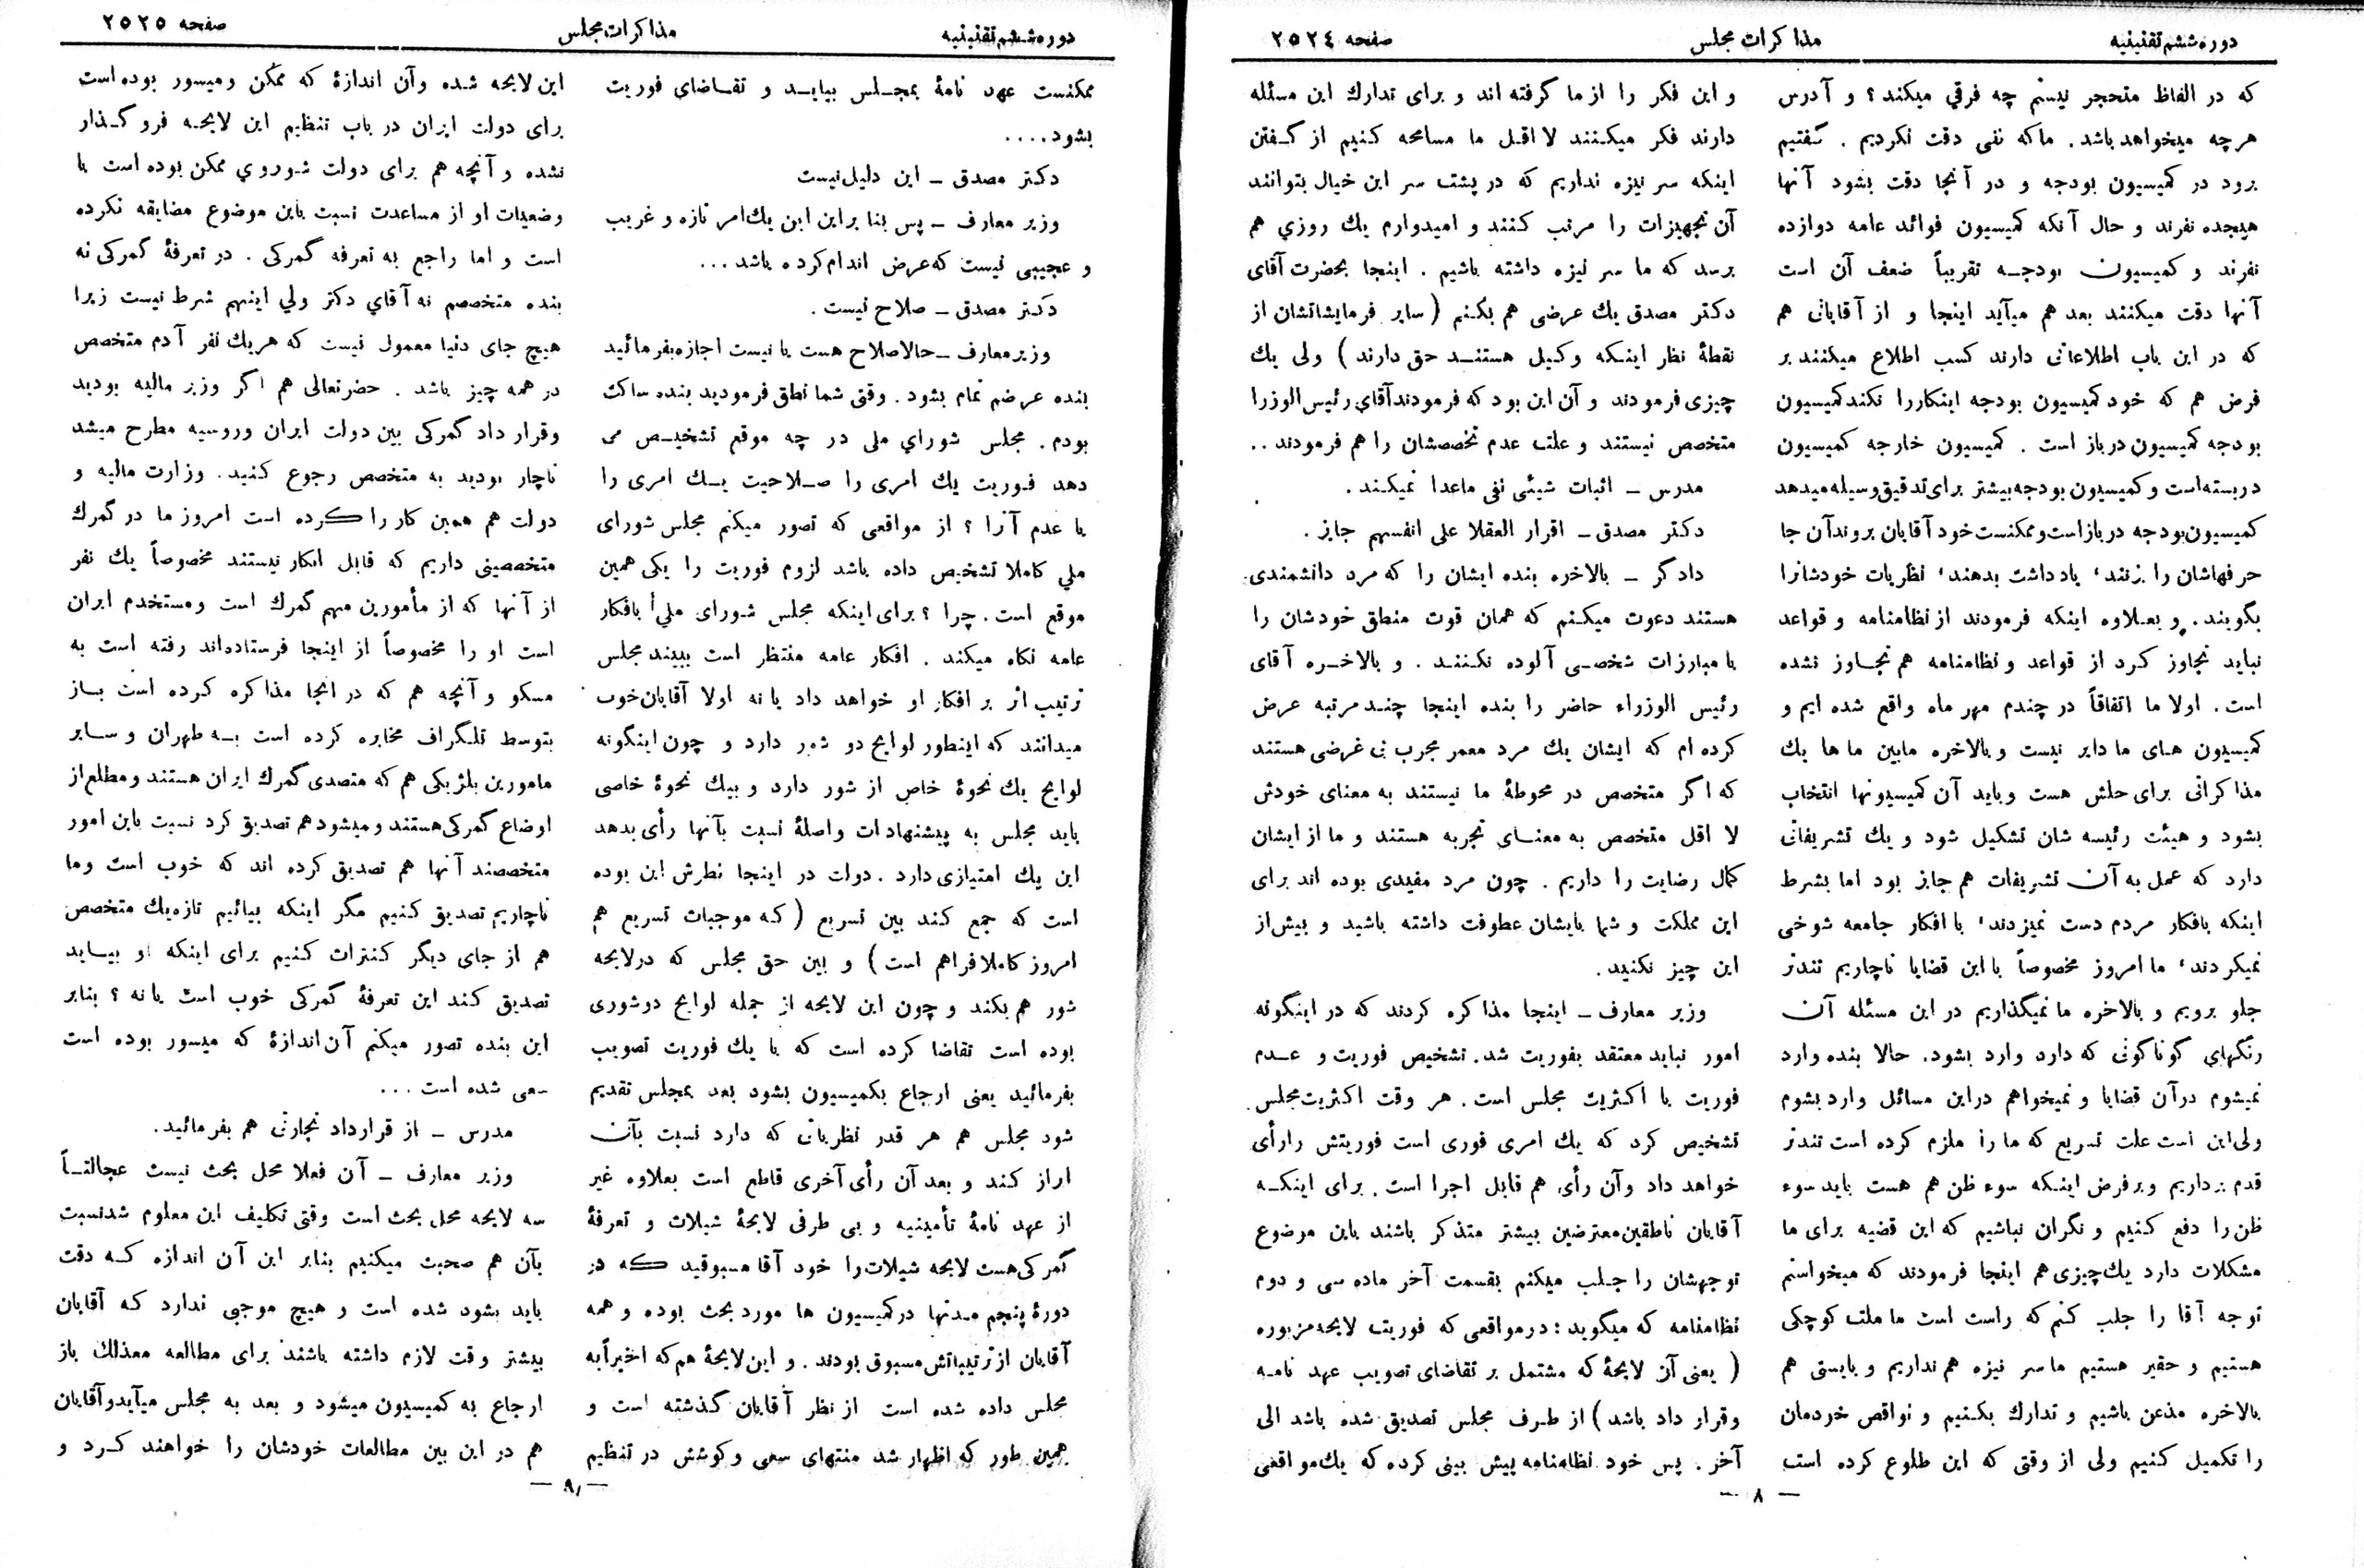 دوره ششم تقنینیه
مذاکرات مجلس
صفحه ۲۵۲٤
که در الفاظ متحجر نیستم چه فرقی میکند؟ و آدرس
هرچه میخواهد باشد. ماکه نفی دقت نکردیم. گفتیم
برود در کمیسیون بودجه و در آنجا دقت بشود آنها
هیجده نفرند و حال آنکه کمیسیون فوائد عامه دوازده
نفرند و کمیسیون بودجه تقریباً ضعف آن است
آنها دقت میکنند بعد هم میآید اینجا و از آقایانی هم
که در این باب اطلاعاتی دارند کسب اطلاع میکنند بر
فرض هم که خود کمیسیون بودجه اینکاررا نکند کمیسیون
بودجه کمیسیون درباز است. کمیسیون خارجه کمیسیون
دربسته است و کمیسیون بودجه بیشتر برای تدقیق وسیله میدهد
کمیسیون بودجه درباز است و ممکنست خود آقایان بروند آن جا
حرفهاشان را بزنند، یادداشت بدهند، نظریات خودشانرا
بگویند. و بعلاوه اینکه فرمودند از نظامنامه و قواعد
نباید تجاوز کرد از قواعد و نظامنامه هم تجاوز نشده
است. اولا ما اتفاقاً در چندم مهر ماه واقع شده ایم و
کمیسیون های ما دایر نیست و بالاخره مابین ماها یك
مذاکراتی برای حلش هست و باید آن کمیسیونها انتخاب
بشود و هیئت رئیسه شان تشکیل شود و یك تشریفاتی
دارد که عمل به آن تشریفات هم جایز بود اما بشرط
اینکه بافکار مردم دست نمیزدند، با افکار جامعه شوخی
نمیکردند، ما امروز مخصوصاً با این قضایا ناچاریم تندتر
جلو برویم و بالاخره ما نمیگذاریم در این مسئله آن
رنگهای گوناگونی که دارد وارد بشود. حالا بنده وارد
نمیشوم درآن قضایا و نمیخواهم دراین مسائل وارد بشوم
ولی این است علت تسریع که ما را ملزم کرده است تندتر
قدم برداریم و برفرض اینکه سوء ظن هم هست باید سوء
ظن را دفع کنیم و نگران نباشیم که این قضیه برای ما
مشکلات دارد یك چیزی هم اینجا فرمودند که میخواستم
توجه آقا را جلب کنم که راست است ما ملت کوچکی
هستیم و حقیر هستیم ما سر نیزه هم نداریم و بایستی هم
بالاخره مذعن باشیم و تدارك بکنیم و نواقص خودمان
را تکمیل کنیم ولی از وقتی که این طلوع کرده است
و این فکر را از ما گرفته اند و برای تدارك این مسئله
دارند فکر میکنند لا اقل ما مسامحه کنیم از گفتن
اینکه سر نیزه نداریم که در پشت سر این خیال بتوانند
آن تجهیزات را مرتب کنند و امیدوارم یك روزی هم
برسد که ما سر نیزه داشته باشیم. اینجا بحضرت آقای
دکتر مصدق یك عرضی هم بکنم (سایر فرمایشاتشان از
نقطهٔ نظر اینکه وکیل هستند حق دارند) ولی یك
چیزی فرمودند و آن این بود که فرمودند آقای رئیس الوزرا
متخصص نیستند و علت عدم تخصصشان را هم فرمودند..
مدرس ـ اثبات شیئی نفی ماعدا نمیکند.
دکتر مصدق ـ اقرار العقلا علی انفسهم جایز.
دادگر ـ بالاخره بنده ایشان را که مرد دانشمندی
هستند دعوت میکنم که همان قوت منطق خودشان را
با مبارزات شخصی آلوده نکنند. و بالاخره آقای
رئیس الوزراء حاضر را بنده اینجا چند مرتبه عرض
کرده ام که ایشان یك مرد معمر مجرب بی غرضی هستند
که اگر متخصص در محوطهٔ ما نیستند به معنای خودش
لا اقل متخصص به معنای تجربه هستند و ما از ایشان
کمال رضایت را داریم. چون مرد مفیدی بوده اند برای
این مملکت و شما بایشان عطوفت داشته باشید و بیش از
این چیز نکنید.
وزیر معارف ـ اینجا مذاکره کردند که در اینگونه
امور نباید معتقد بفوریت شد. تشخیص فوریت و عدم
فوریت با اکثریت مجلس است. هر وقت اکثریت مجلس
تشخیص کرد که یك امری فوری است فوریتش را رأی
خواهد داد و آن رأی هم قابل اجرا است. برای اینکه
آقایان ناطقین معترضین بیشتر متذکر باشند باین موضوع
توجهشان را جلب میکنم بقسمت آخر ماده سی و دوم
نظامنامه که میگوید: در مواقعی که فوریت لایحه مزبوره
(یعنی آن لایحهٔ که مشتمل بر تقاضای تصویب عهد نامه
وقرار داد باشد) از طرف مجلس تصدیق شده باشد الی
آخر. پس خود نظامنامه پیش بینی کرده که یك مواقعی
— ۸ —
دوره ششم تقنینیه
مذاکرات مجلس
صفحه ۲۵۲۵
ممکنست عهد نامهٔ بمجلس بیاید و تقاضای فوریت
بشود....
دکتر مصدق ـ این دلیل نیست
وزیر معارف ـ پس بنا براین این یك امر تازه و غریب
و عجیبی نیست که عرض اندام کرده باشد...
دکتر مصدق ـ صلاح نیست.
وزیر معارف ـ حالا صلاح هست یا نیست اجازه بفرمائید
بنده عرضم تمام بشود. وقتی شما نطق فرمودید بنده ساکت
بودم. مجلس شورای ملی در چه موقع تشخیص می
دهد فوریت یك امری را صلاحیت یك امری را
یا عدم آنرا؟ از مواقعی که تصور میکنم مجلس شورای
ملی کاملا تشخیص داده باشد لزوم فوریت را یکی همین
موقع است. چرا؟ برای اینکه مجلس شورای ملی بافکار
عامه نگاه میکند. افکار عامه منتظر است ببیند مجلس
ترتیب اثر بر افکار او خواهد داد یا نه اولا آقایان خوب
میدانند که اینطور لوایح دو شور دارد و چون اینگونه
لوایح یك نحوهٔ خاص از شور دارد و بیك نحوهٔ خاصی
باید مجلس به پیشنهادات واصلهٔ نسبت بآنها رأی بدهد
این یك امتیازی دارد. دولت در اینجا نظرش این بوده
است که جمع کند بین تسریع (که موجبات تسریع هم
امروز کاملا فراهم است) و بین حق مجلس که درلایحه
شور هم بکند و چون این لایحه از جمله لوایح دوشوری
بوده است تقاضا کرده است که با یك فوریت تصویب
بفرمائید یعنی ارجاع بکمیسیون بشود بعد بمجلس تقدیم
شود مجلس هم هر قدر نظریاتی که دارد نسبت بآن
ابراز کند و بعد آن رأی آخری قاطع است بعلاوه غیر
از عهد نامهٔ تأمینیه و بی طرفی لایحهٔ شیلات و تعرفهٔ
گمرکی هست لایحه شیلات را خود آقا مسبوقید که در
دورهٔ پنجم مدتها درکمیسیون ها مورد بحث بوده و همه
آقایان از ترتیباتش مسبوق بودند. و این لایحهٔ هم که اخیراً به
مجلس داده شده است از نظر آقایان گذشته است و
همین طور که اظهار شد منتهای سعی و کوشش در تنظیم
این لایحه شده وآن اندازهٔ که ممکن و میسور بوده است
برای دولت ایران در باب تنظیم این لایحه فروگذار
نشده و آنچه هم برای دولت شوروی ممکن بوده است با
وضعیات او از مساعدت نسبت باین موضوع مضایقه نکرده
است و اما راجع به تعرفه گمرکی. در تعرفهٔ گمرکی نه
بنده متخصصم نه آقای دکتر ولی اینهم شرط نیست زیرا
هیچ جای دنیا معمول نیست که هریك نفر آدم متخصص
در همه چیز باشد. حضرتعالی هم اگر وزیر مالیه بودید
وقرار داد گمرکی بین دولت ایران وروسیه مطرح میشد
ناچار بودید به متخصص رجوع کنید. وزارت مالیه و
دولت هم همین کار را کرده است امروز ما در گمرك
متخصصینی داریم که قابل انکار نیستند مخصوصاً یك نفر
از آنها که از مأمورین مهم گمرك است ومستخدم ایران
است او را مخصوصاً از اینجا فرستاده‌اند رفته است به
مسکو و آنچه هم که در انجا مذاکره کرده است باز
بتوسط تلگراف مخابره کرده است به طهران و سایر
مامورین بلژیکی هم که متصدی گمرك ایران هستند و مطلع از
اوضاع گمرکی هستند و میشود هم تصدیق کرد نسبت باین امور
متخصصند آنها هم تصدیق کرده اند که خوب است وما
ناچاریم تصدیق کنیم مگر اینکه بیائیم تازه یك متخصص
هم از جای دیگر کنترات کنیم برای اینکه او بیاید
تصدیق کند این تعرفهٔ گمرکی خوب است یا نه؟ بنابر
این بنده تصور میکنم آن اندازهٔ که میسور بوده است
سعی شده است...
مدرس ـ از قرارداد تجارتی هم بفرمائید.
وزیر معارف ـ آن فعلا محل بحث نیست عجالتاً
سه لایحه محل بحث است وقتی تکلیف این معلوم شد نسبت
بآن هم صحبت میکنیم بنابر این آن اندازه که دقت
باید بشود شده است و هیچ موجبی ندارد که آقایان
بیشتر وقت لازم داشته باشند برای مطالعه معذلك باز
ارجاع به کمیسیون میشود و بعد به مجلس میآید و آقایان
هم در این بین مطالعات خودشان را خواهند کرد و
— ۹ —